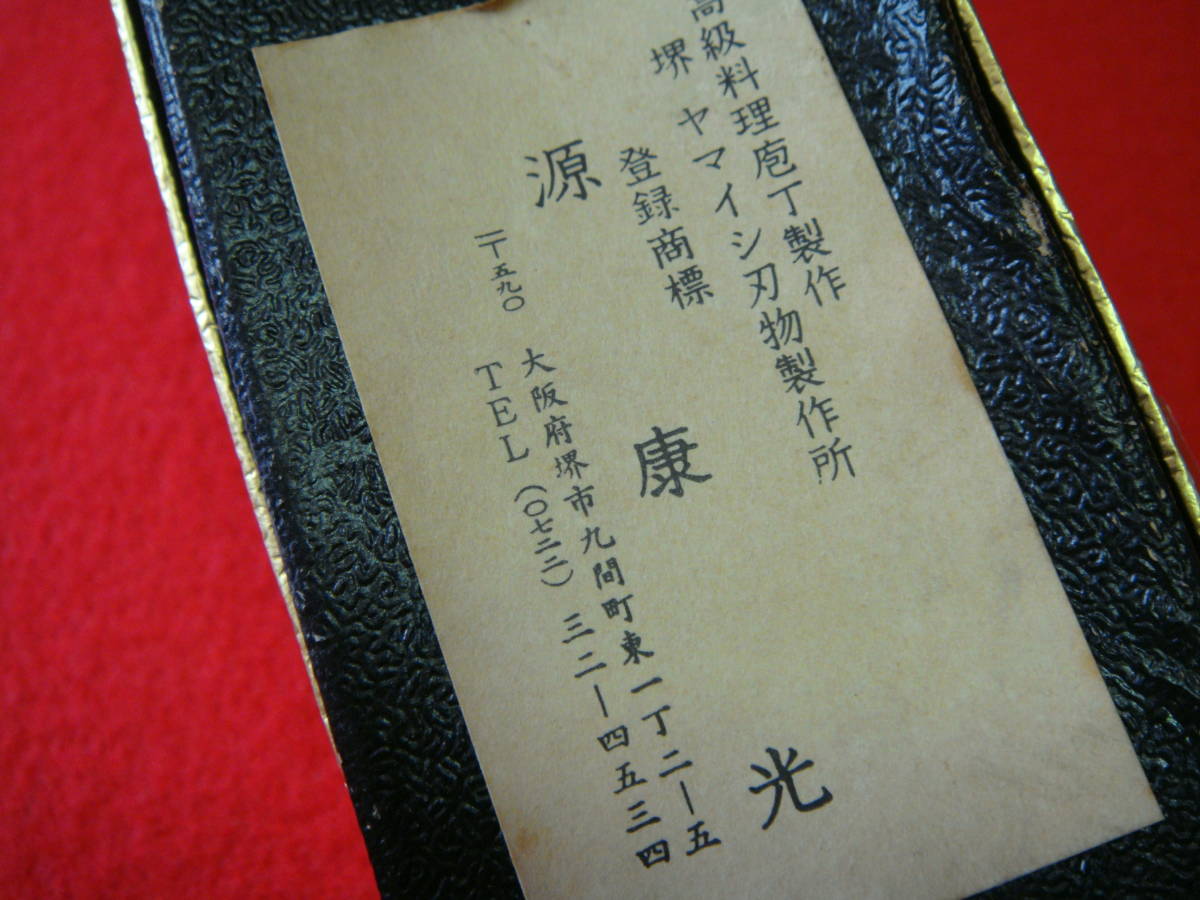 高級料理庖丁製作
堺 ヤマイシ刃物製作所
登録商標
源 康 光
〒五九〇 大阪府堺市九間町東一丁二ー五
TEL（〇七二二）三二ー四五三四